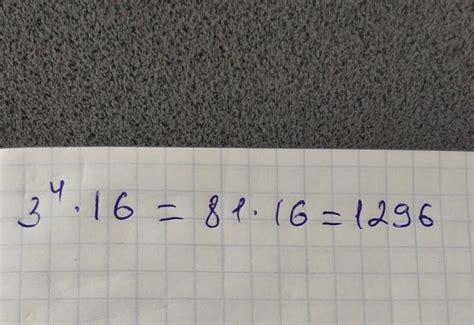 3⁴·16 = 81·16 = 1296